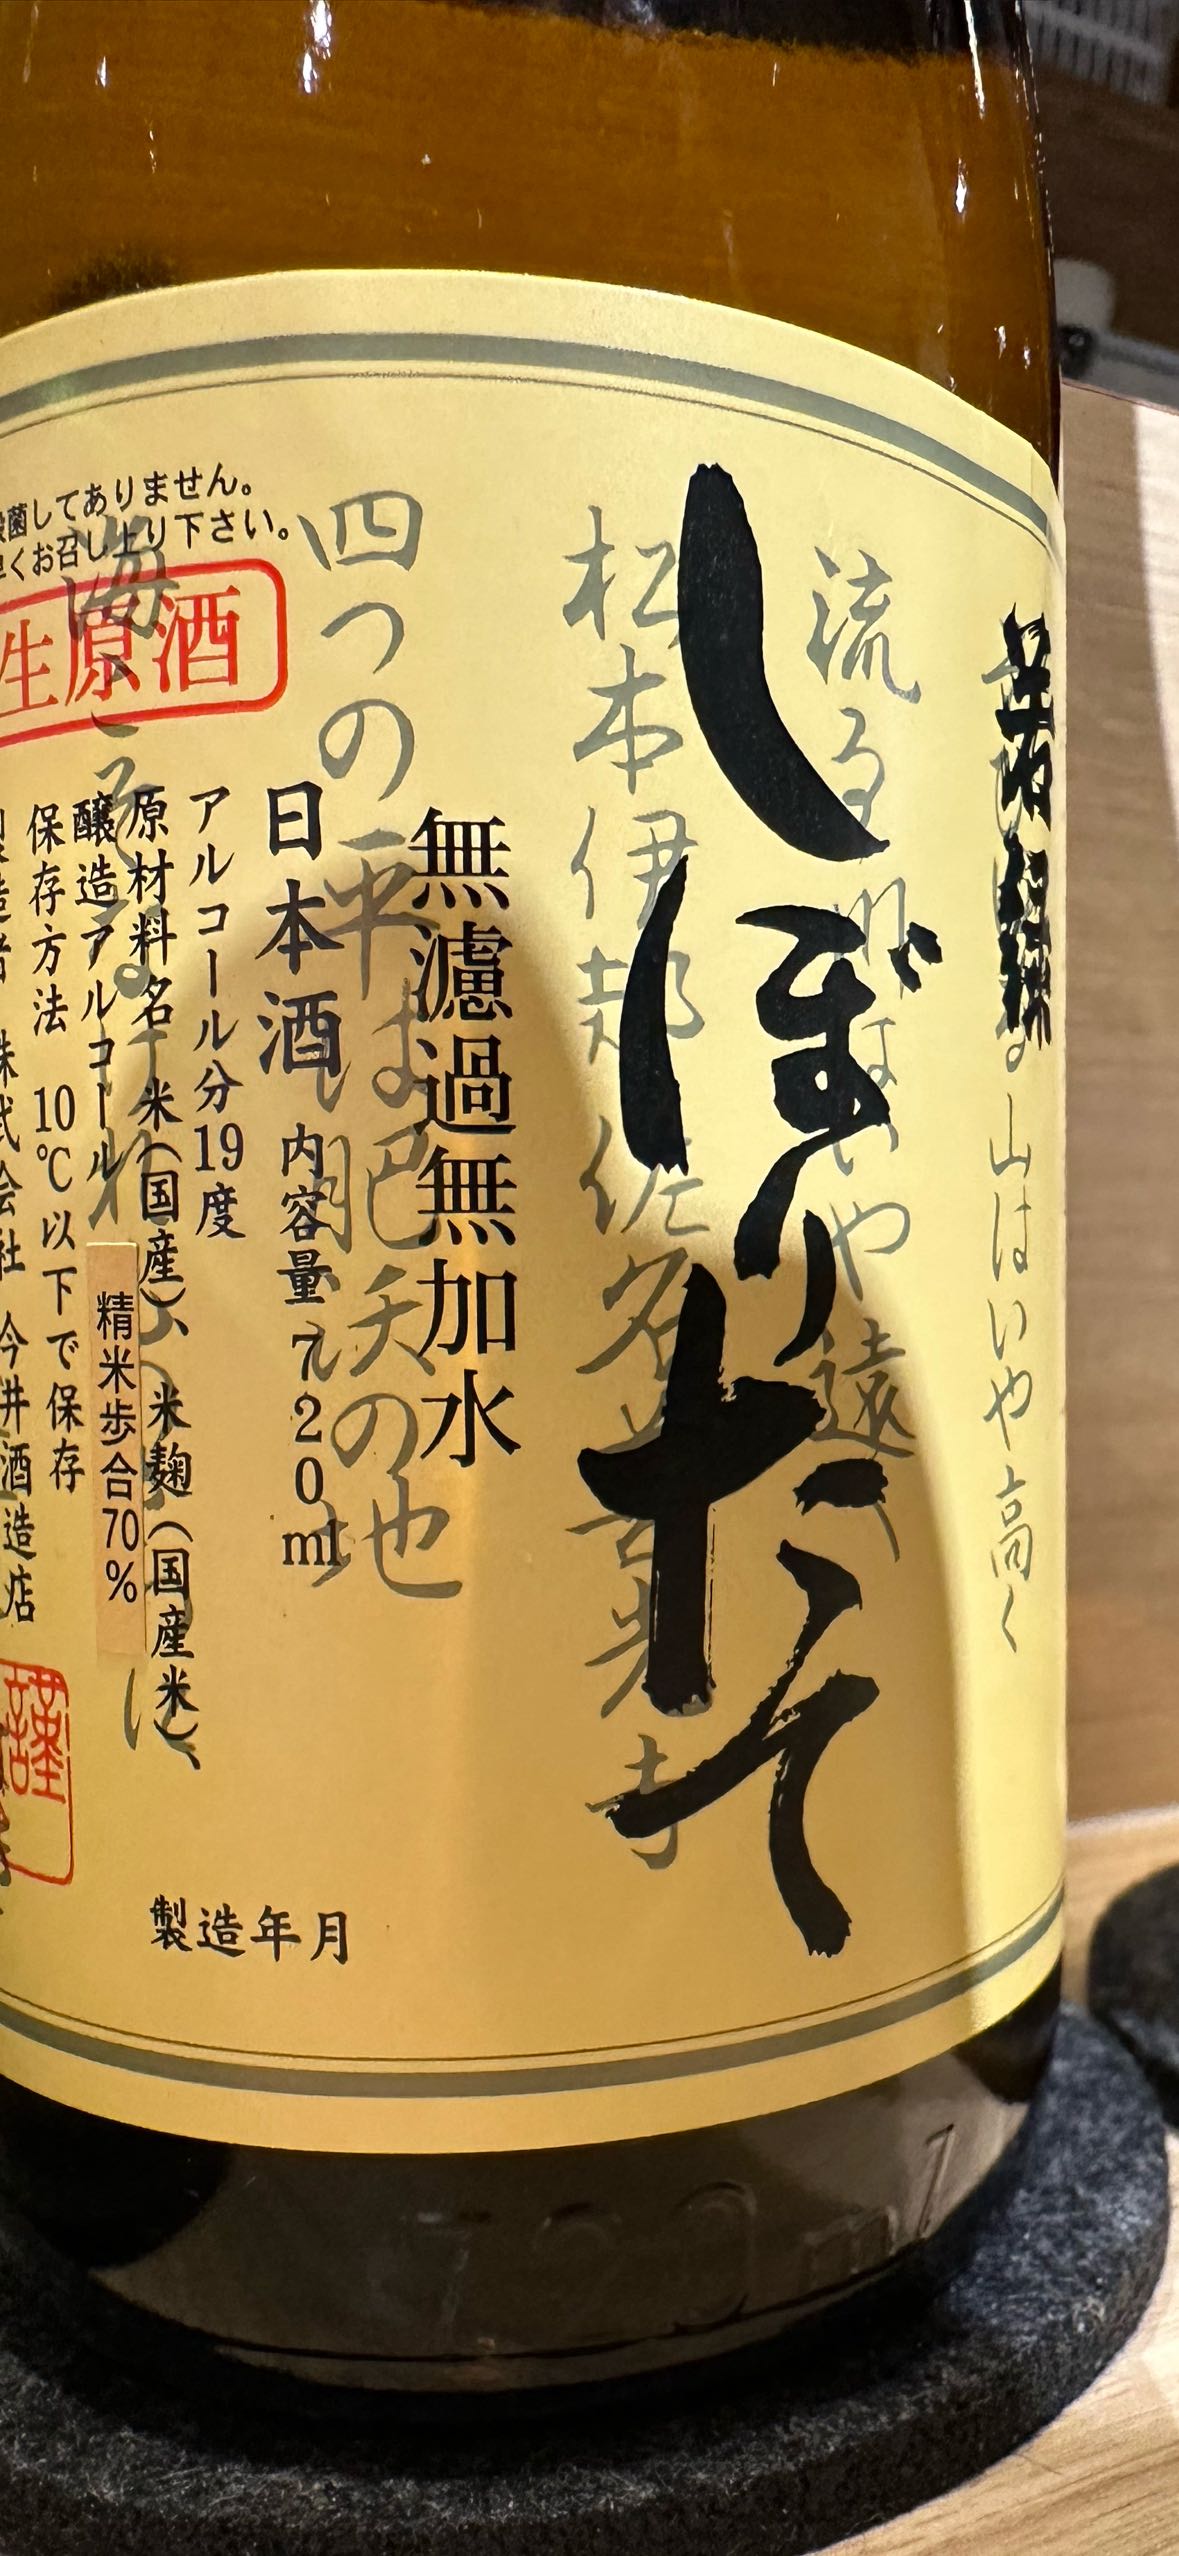 山はいやく高く
流るゝ川はいや遠く
しぼりたて
松本伊那佐
四つの平は肥沃の也
無濾過無加水
日本酒 内容量720ml
アルコール分19度
原材料名 米(国産)、米麹(国産米)、
醸造アルコール
精米歩合70%
保存方法 10℃以下で保存
株式会社 今井酒造店
菌してありません。
くお召し上り下さい。
生原酒
謹
製造年月